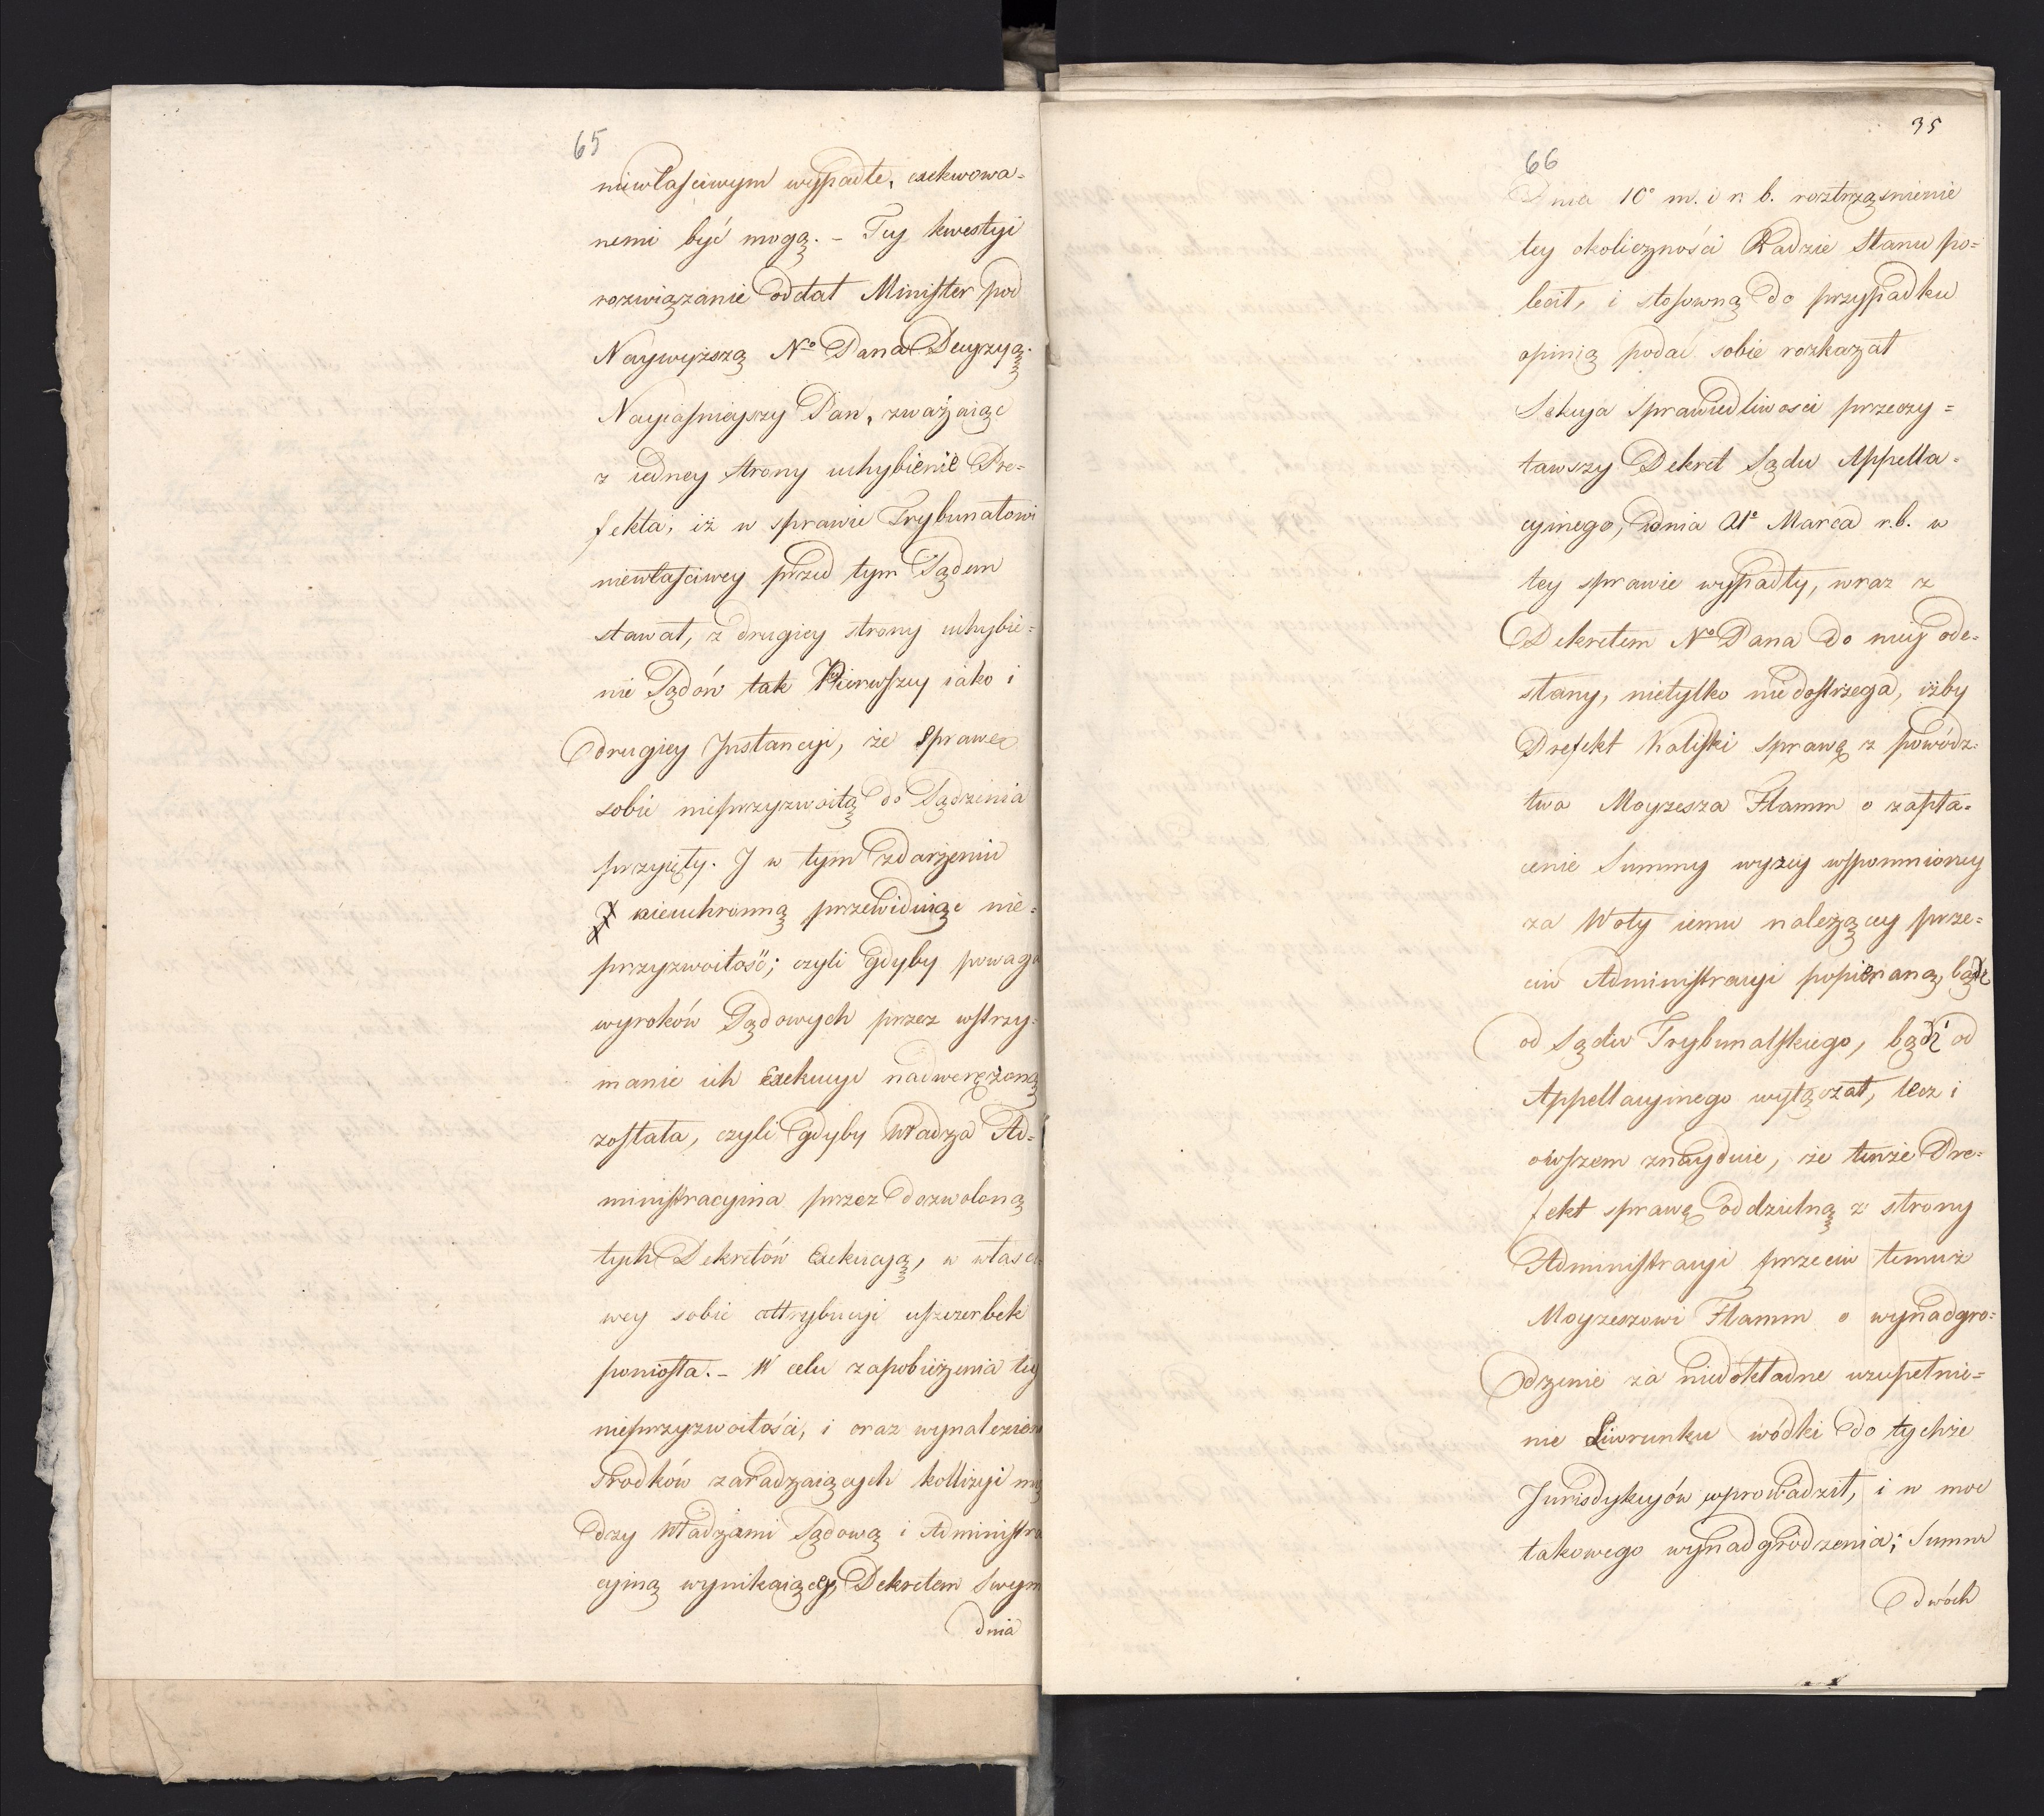 65
niewłaściwym wypadłe, exekwowa=
nemi być mogą. – Tey kwestyi
rozwiązanie oddał Minister pod
Naywyższą Nº Pana Decyzyą.
Nayiaśnieyszy Pan, zważaiąc
z iedney strony uchybienie Pre=
fekta, iż w sprawie Trybunałowi
niewłaściwey przed tym Sądem
stawał, z drugiey strony uchybie=
nie Sądów tak Pierwszey iako i
drugiey Instancyi, że sprawę
sobie nieprzyzwoitą do Sądzenia
przyięły. I w tym zdarzeniu
nieuchronną przewiduiąc nie=
przyzwoitość; czyli gdyby powaga
wyroków Sądowych przez wstrzy=
manie ich Exekucyi nadwerężoną
została, czyli gdyby Władza Ad=
ministracyina przez dozwoloną
tych Dekretów Exekucyą, w właści
wey sobie attrybucyi uszczerbek
poniosła. – W celu zapobieżenia tey
nieprzyzwoitości, i oraz wynalezien
srodków zaradzaiących kollizyi mię
dzy Władzami Sądową i Administra
cyiną wynikaiącey, Dekretem swym
dnia
35
66
Dnia 10º m. i r. b. roztrząsnienie
tey okoliczności Radzie Stanu po=
lecił, i stosowną do przypadku
opinią podać sobie rozkazał
Sekcya Sprawiedliwosci przeczy=
tawszy Dekret Sądu Appella=
cyinego, dnia 21º Marca r. b. w
tey sprawie wypadły, wraz z
Dekretem Nº Pana do niey ode=
słany, nietylko nie dostrzega, iżby
Prefekt Kaliski sprawę z powódz=
twa Moyzesza Flamm o zapła=
cenie Summy wyzey wspomnioney
za Woły iemu należącey prze=
ciw Administracyi popieraną, bądź
od Sądu Trybunalskiego, bądź od
Appellacyinego wyłączał, lecz i
owszem znayduie, że tenże Pre=
fekt sprawę oddzielną z strony
Administracyi przeciw temuż
Moyzeszowi Flamm o wynadgro=
dzenie za niedokładne uzupełnie=
nie Liwrunku wódki do tychże
Jurisdykcyów wprowadził, i w moc
takowego wynadgrodzenia; Summ
dwóch